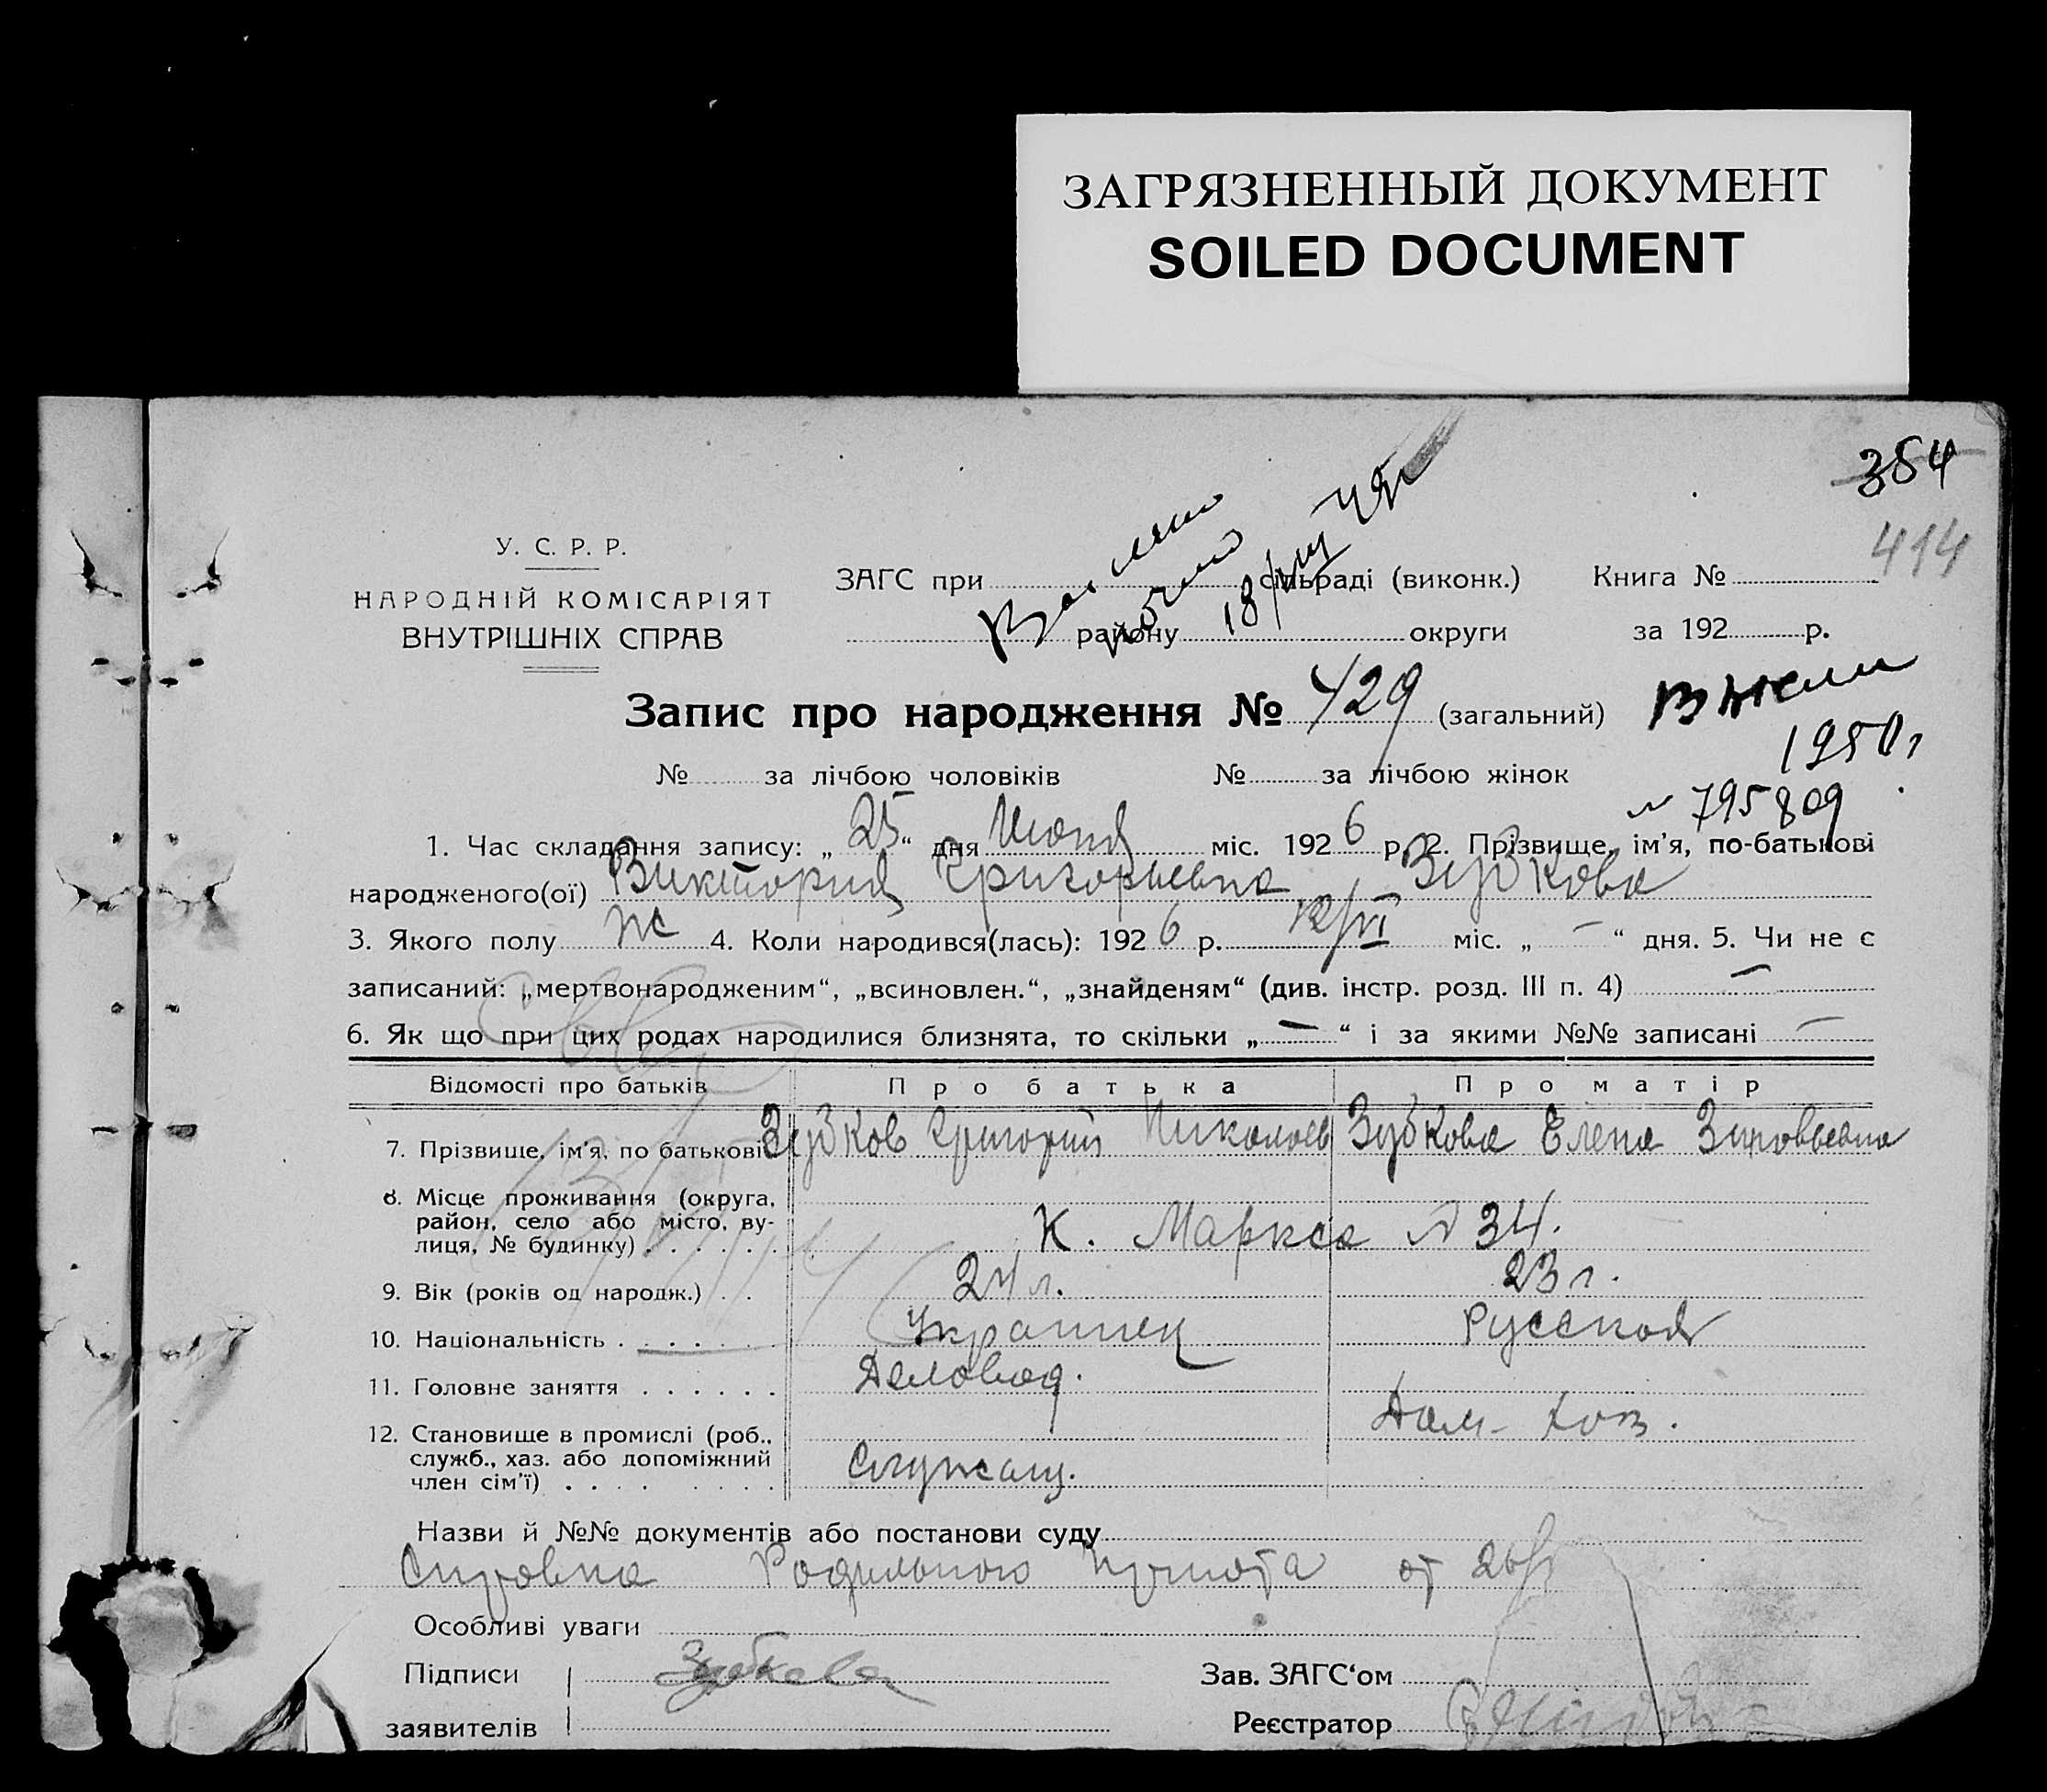 ЗАГРЯЗНЕННЫЙ ДОКУМЕНТ
SOILED DOCUMENT
354
414
У. С. Р. Р.
НАРОДНІЙ КОМІСАРІЯТ
ВНУТРІШНІХ СПРАВ
ЗАГС при сільраді (виконк.) Книга №
району округи за 192 р.
Запис про народження № 429 (загальний)
1950 г
№ за лічбою чоловіків № за лічбою жінок
№ 795809
1. Час складання запису: „ 25 “ дня Июня міс. 1926 р. 2. Прізвище, ім'я, по-батькові
народженого(ої) Виктория Григорьевна Зубкова
3. Якого полу ж 4. Коли народився(лась): 1926 р. міс. „ — “ дня. 5. Чи не є
записаний: „мертвонародженим“, „всиновлен.“, „знайденям“ (див. інстр. розд. III п. 4) —
6. Як що при цих родах народилися близнята, то скільки „ — “ і за якими №№ записані —
Відомості про батьків Про батька Про матір
7. Прізвище, ім'я, по батькові Зубков Григорий Николаев Зубкова Елена Зиновьевна
8. Місце проживання (округа,
район, село або місто, ву-
лиця, № будинку) . . . . . . К. Маркса № 34.
9. Вік (років од народж.) . . 24 л. 23 г.
10. Національність . . . . . . Украинец Русская
11. Головне заняття . . . . . . Деловод.
Дом. хоз.
12. Становище в промислі (роб.,
служб., хаз. або допоміжний
член сім'ї) . . . . . . . . Служащ.
Назви й №№ документів або постанови суду
Справка Родильного приюта от
Особливі уваги
Підписи Зубкова Зав. ЗАГС‘ом
заявителів Реєстратор